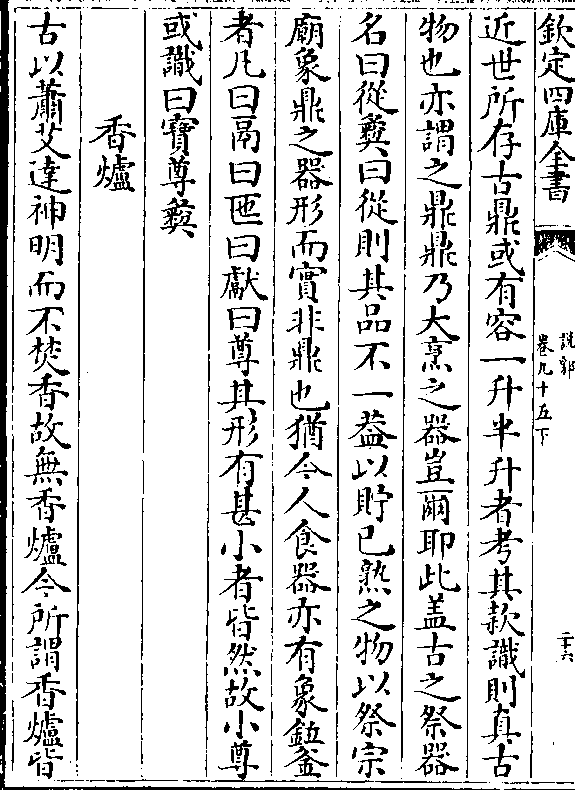 欽定四庫全書
說郛
卷九十五下
二十六
近世所存古鼎或有容一升半升者考其款識則真古
物也亦謂之鼎鼎乃大烹之器豈爾耶此盖古之祭器
名曰從彝曰從則其品不一葢以貯已熟之物以祭宗
廟象鼎之器形而實非鼎也猶今人食器亦有象鼓釜
者凡曰鬲曰匜曰獻曰尊其形有甚小者皆然故小尊
或識曰寶尊彝
香爐
古以蕭艾達神明而不焚香故無香爐今所謂香爐皆